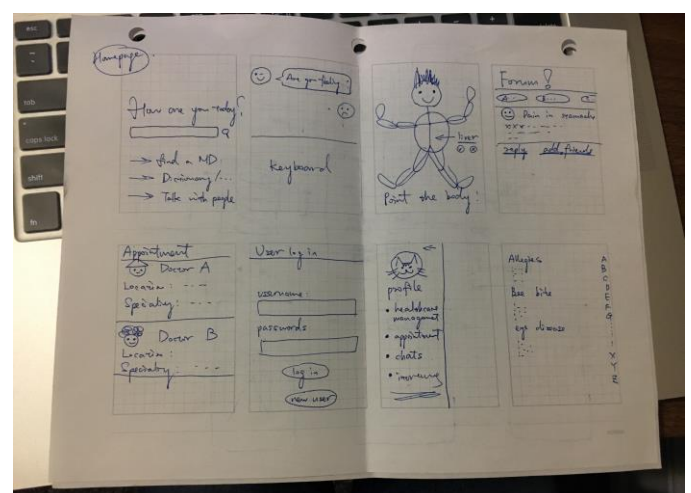 esc
tab
caps lock
shift
fn
Homepage
How are you today?
→ find a MD
→ Dictionary / ...
→ Talk with people
Are you feeling
keyboard
liver
Point the body!
Forum!
A
Pain in stomach
reply add friends
Appointment
Doctor A
Location : - - -
Specialty : - - -
Doctor B
Location :
Specialty : - - -
User log in
username :
passwords
log in
new user
profile
• healthcare
management
• appointment
• chats
Allegies
Bee bite
eye disease
A
B
C
D
E
F
G
X
Y